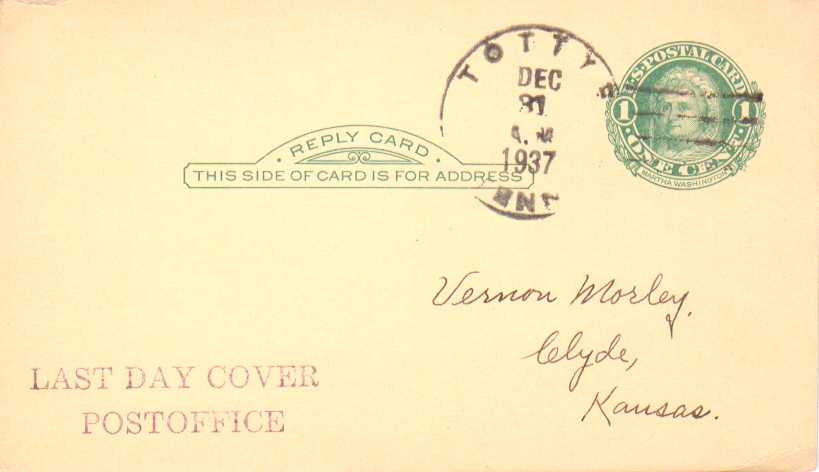 TOTTY
DEC
31
A.M
1937
U.S. POSTAL CARD
1 1
ONE CENT
MARTHA WASHINGTON
REPLY CARD
THIS SIDE OF CARD IS FOR ADDRESS
Vernon Morley.
Clyde,
Kansas.
LAST DAY COVER
POSTOFFICE